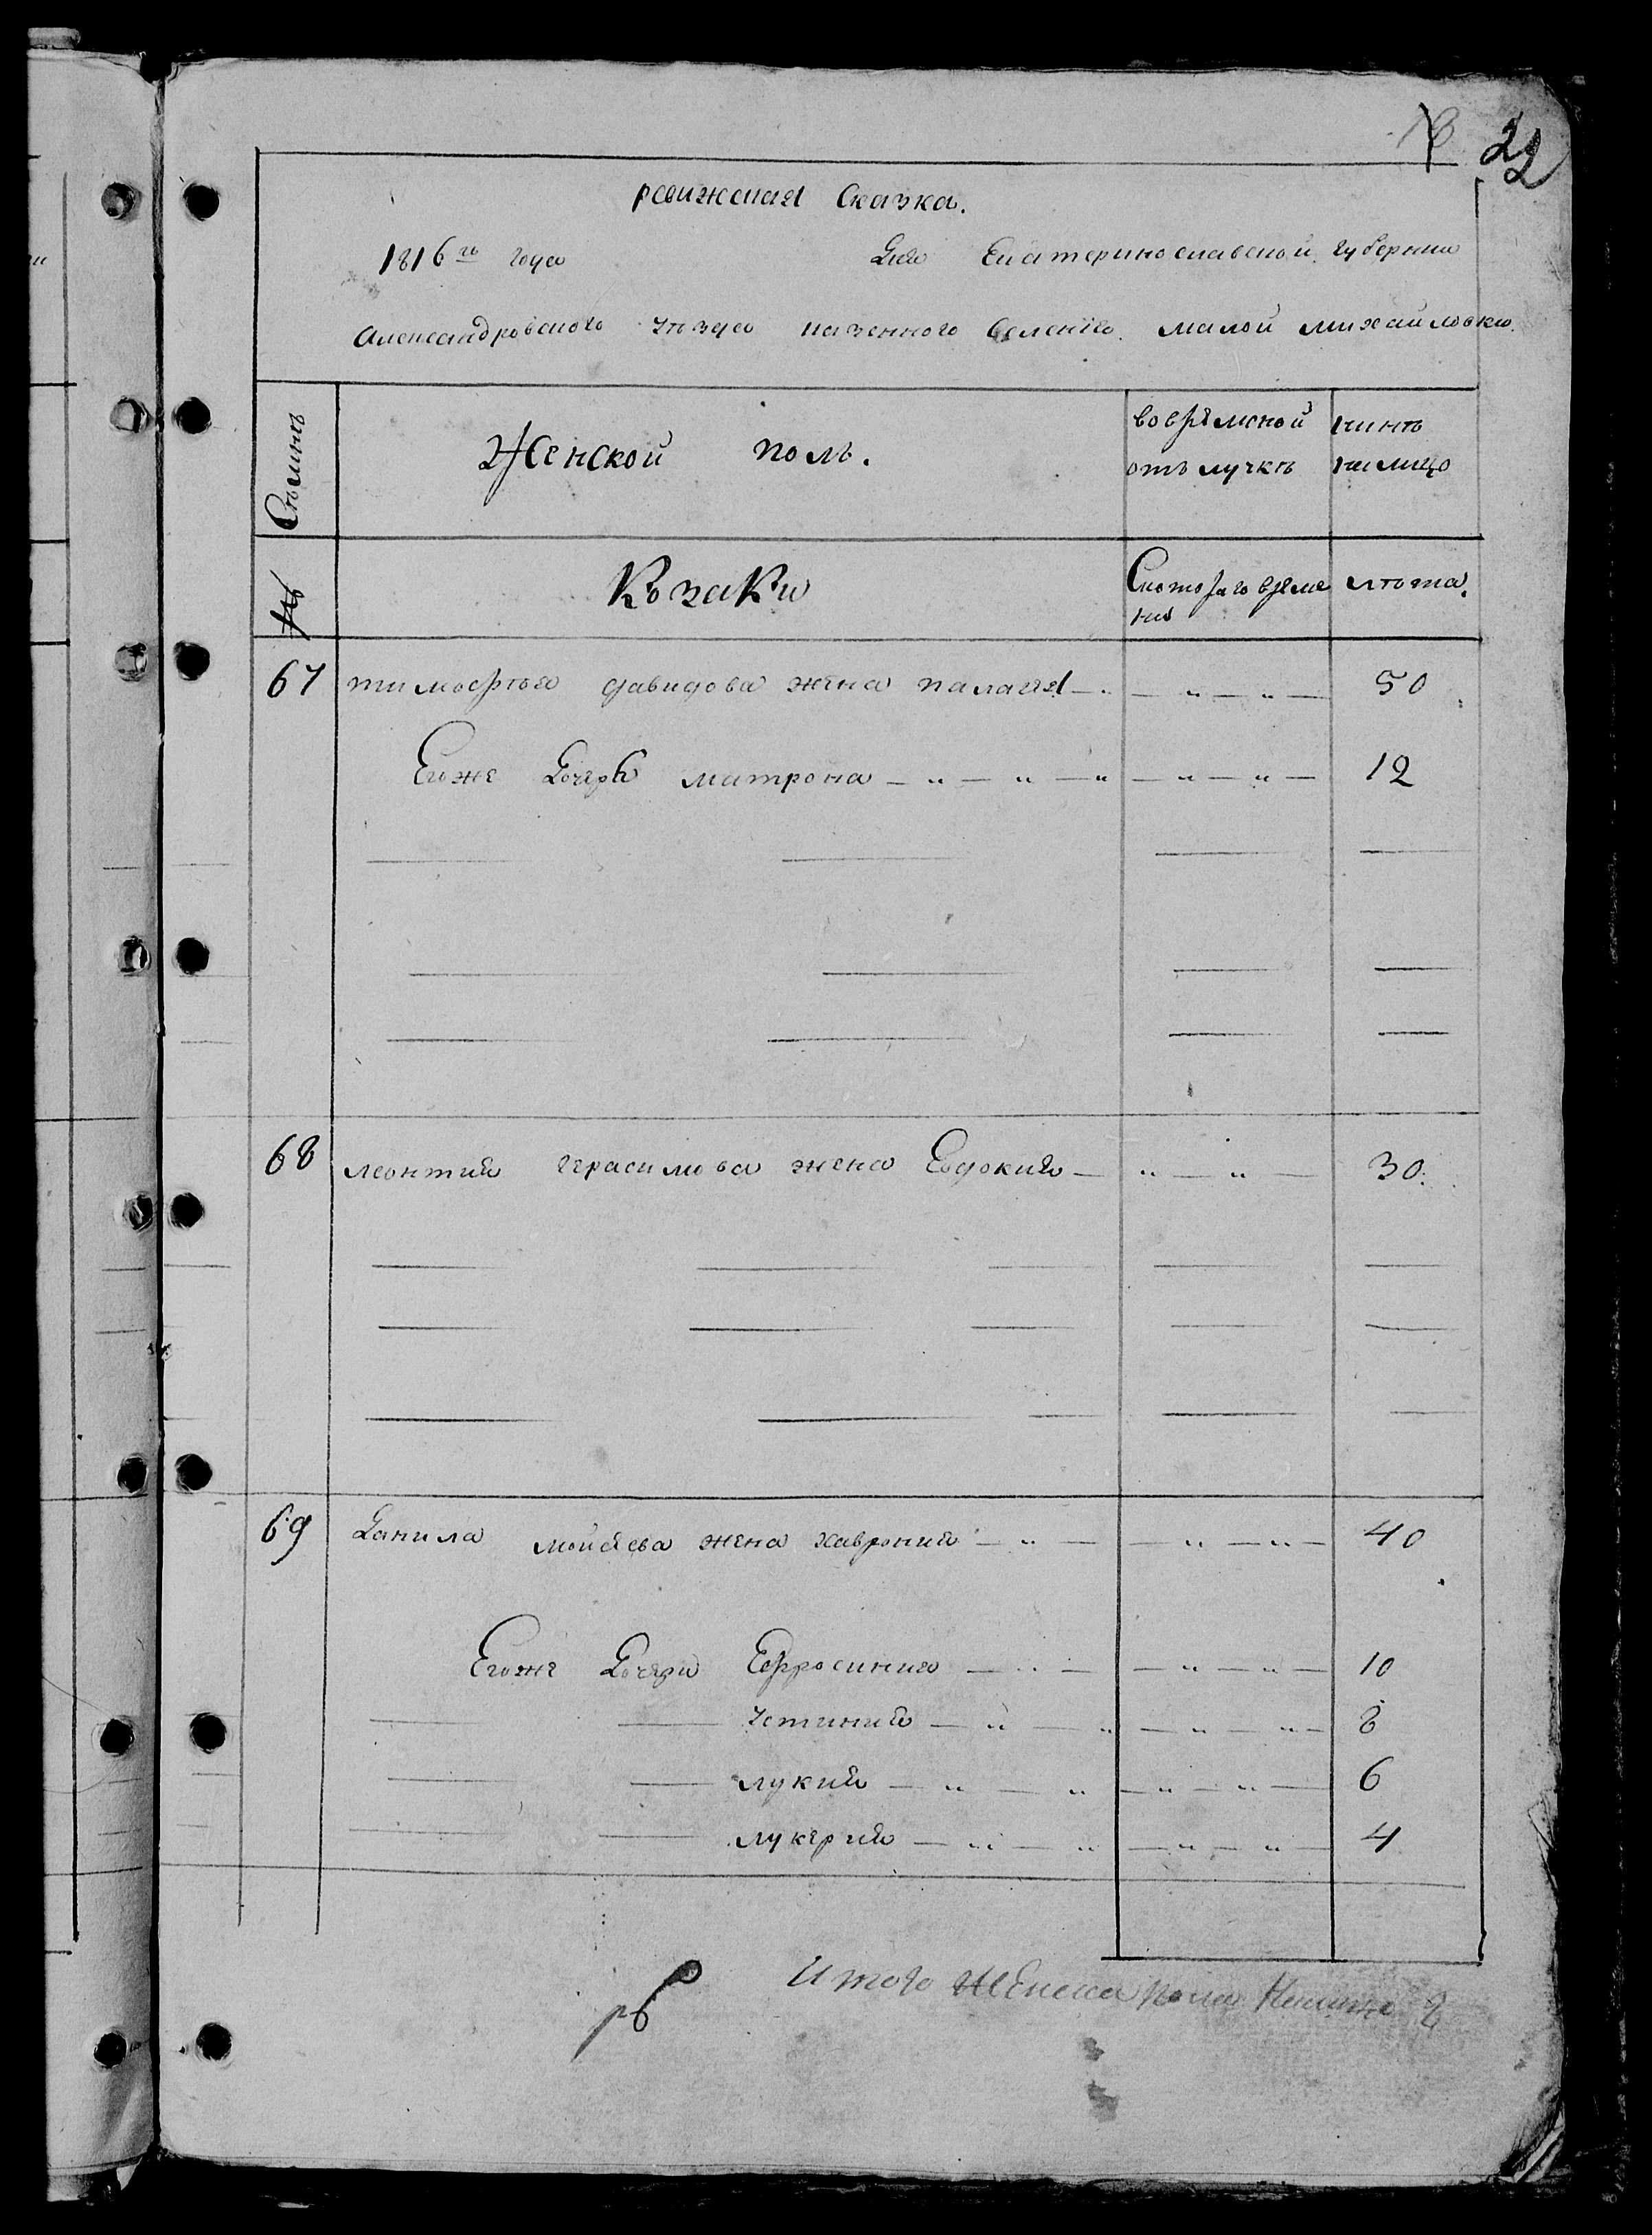 22
ревижсная Сказка.
1816го года Дня Екатеринославской губернии
Александровского уѣзда казенного Селения малой михайловки.
Сѣминъ
Женской полъ.
вовремѧной отълучкѣ
нынѣ налицо
№
Козаки
Скоторого времени
лѣта.
67 тимофѣя давидова жена палагия — „ — „ — „ — 50
Егоже Дочерь матрона — „ — „ — „ — „ — „ — 12
68 леонтия герасимова жена Евдокия — „ — „ — 30
69 Данила мойсеева жена хаврония — „ — — „ — „ — 40
Егоже Дочери Ефросиния — „ — — „ — „ — 10
устиния — „ — „ — „ — „ — 8
лукия — „ — „ — „ — „ — 6
лукерия — „ — „ — „ — „ — 4
Итого женска пола Налицо 8